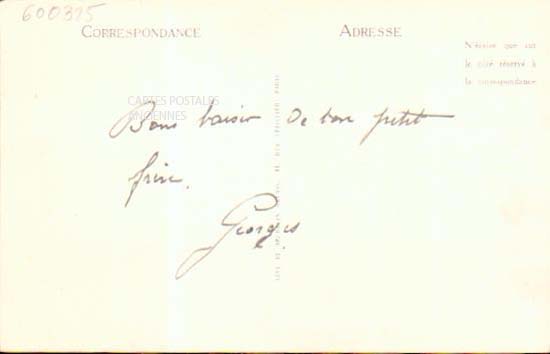 600315
CORRESPONDANCE
ADRESSE
N'écrire que sur
le côté réservé à
la correspondance
CARTES POSTALES
ANCIENNES
Bons baiser de ton petit
frère.
Georges